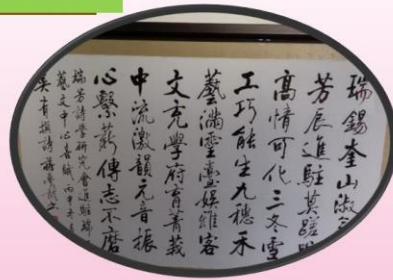 瑞錫奎山淑
芳辰進駐莫蹉
高情可化三冬雪
工巧能生九穗禾
藝滿靈臺娛雅客
文充學府育菁莪
中流激韻元音振
心繫薪傳志不磨
瑞芳詩學研究會進駐瑞
藝文中心喜賦 丙申
吳有撰詩